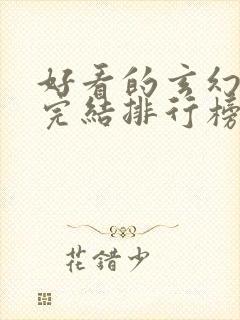 好看的玄幻
完结排行榜
花错少